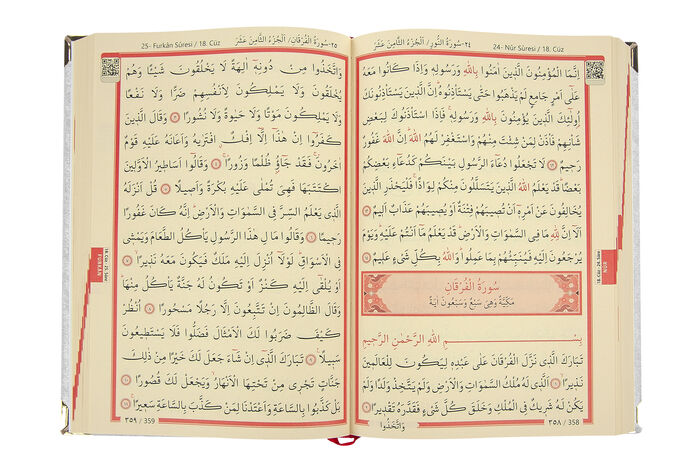 ٢٤-سُورَةُ النُّورِ/ اَلْجُزْءُ الثَّامِنَ عَشَرَ 24- Nûr Sûresi / 18. Cüz
اِنَّمَا الْمُؤْمِنُونَ الَّذٖينَ اٰمَنُوا بِاللّٰهِ وَرَسُولِهٖ وَاِذَا كَانُوا مَعَهُ
عَلٰٓى اَمْرٍ جَامِعٍ لَمْ يَذْهَبُوا حَتّٰى يَسْتَأْذِنُوهُ اِنَّ الَّذٖينَ يَسْتَأْذِنُونَكَ
اُو۬لٰٓئِكَ الَّذٖينَ يُؤْمِنُونَ بِاللّٰهِ وَرَسُولِهٖ فَاِذَا اسْتَأْذَنُوكَ لِبَعْضِ
شَأْنِهِمْ فَأْذَنْ لِمَنْ شِئْتَ مِنْهُمْ وَاسْتَغْفِرْ لَهُمُ اللّٰهَ اِنَّ اللّٰهَ غَفُورٌ
رَحٖيمٌ ﴿٦٢﴾ لَا تَجْعَلُوا دُعَٓاءَ الرَّسُولِ بَيْنَكُمْ كَدُعَٓاءِ بَعْضِكُمْ
بَعْضًا قَدْ يَعْلَمُ اللّٰهُ الَّذٖينَ يَتَسَلَّلُونَ مِنْكُمْ لِوَاذًا فَلْيَحْذَرِ الَّذٖينَ
يُخَالِفُونَ عَنْ اَمْرِهٖٓ اَنْ تُصٖيبَهُمْ فِتْنَةٌ اَوْ يُصٖيبَهُمْ عَذَابٌ اَلٖيمٌ ﴿٦٣﴾
اَلَٓا اِنَّ لِلّٰهِ مَا فِي السَّمٰوَاتِ وَالْاَرْضِ قَدْ يَعْلَمُ مَٓا اَنْتُمْ عَلَيْهِ وَيَوْمَ
يُرْجَعُونَ اِلَيْهِ فَيُنَبِّئُهُمْ بِمَا عَمِلُوا وَاللّٰهُ بِكُلِّ شَيْءٍ عَلٖيمٌ ﴿٦٤﴾
سُورَةُ الْفُرْقَانِ
مَكِّيَّةٌ وَهِيَ سَبْعٌ وَسَبْعُونَ اٰيَةً
بِسْمِ اللّٰهِ الرَّحْمٰنِ الرَّحٖيمِ
تَبَارَكَ الَّذٖي نَزَّلَ الْفُرْقَانَ عَلٰى عَبْدِهٖ لِيَكُونَ لِلْعَالَمٖينَ
نَذٖيرًا ﴿١﴾ اَلَّذٖي لَهُ مُلْكُ السَّمٰوَاتِ وَالْاَرْضِ وَلَمْ يَتَّخِذْ وَلَدًا وَلَمْ
يَكُنْ لَهُ شَرٖيكٌ فِي الْمُلْكِ وَخَلَقَ كُلَّ شَيْءٍ فَقَدَّرَهُ تَقْدٖيرًا ﴿٢﴾
وَاتَّخَذُوا
٣٥٨ / 358
18. Cüz - 24. Sûre
NÛR
25- Furkân Sûresi / 18. Cüz ٢٥-سُورَةُ الْفُرْقَانِ/ اَلْجُزْءُ الثَّامِنَ عَشَرَ
وَاتَّخَذُوا مِنْ دُونِهٖٓ اٰلِهَةً لَا يَخْلُقُونَ شَيْـًٔا وَهُمْ
يُخْلَقُونَ وَلَا يَمْلِكُونَ لِاَنْفُسِهِمْ ضَرًّا وَلَا نَفْعًا
وَلَا يَمْلِكُونَ مَوْتًا وَلَا حَيٰوةً وَلَا نُشُورًا ﴿٣﴾ وَقَالَ الَّذٖينَ
كَفَرُٓوا اِنْ هٰذَٓا اِلَّٓا اِفْكٌ افْتَرٰيهُ وَاَعَانَهُ عَلَيْهِ قَوْمٌ
اٰخَرُونَ فَقَدْ جَٓاؤُ۫ ظُلْمًا وَزُورًا ﴿٤﴾ وَقَالُٓوا اَسَاطٖيرُ الْاَوَّلٖينَ
اكْتَتَبَهَا فَهِيَ تُمْلٰى عَلَيْهِ بُكْرَةً وَاَصٖيلًا ﴿٥﴾ قُلْ اَنْزَلَهُ
الَّذٖي يَعْلَمُ السِّرَّ فِي السَّمٰوَاتِ وَالْاَرْضِ اِنَّهُ كَانَ غَفُورًا
رَحٖيمًا ﴿٦﴾ وَقَالُوا مَالِ هٰذَا الرَّسُولِ يَأْكُلُ الطَّعَامَ وَيَمْشٖي
فِي الْاَسْوَاقِ لَوْلَٓا اُنْزِلَ اِلَيْهِ مَلَكٌ فَيَكُونَ مَعَهُ نَذٖيرًا ﴿٧﴾
اَوْ يُلْقٰٓى اِلَيْهِ كَنْزٌ اَوْ تَكُونُ لَهُ جَنَّةٌ يَأْكُلُ مِنْهَا
وَقَالَ الظَّالِمُونَ اِنْ تَتَّبِعُونَ اِلَّا رَجُلًا مَسْحُورًا ﴿٨﴾ اُنْظُرْ
كَيْفَ ضَرَبُوا لَكَ الْاَمْثَالَ فَضَلُّوا فَلَا يَسْتَطٖيعُونَ
سَبٖيلًا ﴿٩﴾ تَبَارَكَ الَّذٖٓي اِنْ شَٓاءَ جَعَلَ لَكَ خَيْرًا مِنْ ذٰلِكَ
جَنَّاتٍ تَجْرٖي مِنْ تَحْتِهَا الْاَنْهَارُ وَيَجْعَلْ لَكَ قُصُورًا ﴿١٠﴾
بَلْ كَذَّبُوا بِالسَّاعَةِ وَاَعْتَدْنَا لِمَنْ كَذَّبَ بِالسَّاعَةِ سَعٖيرًا ﴿١١﴾
٣٥٩ / 359
18. Cüz - 25. Sûre
FURKÂN